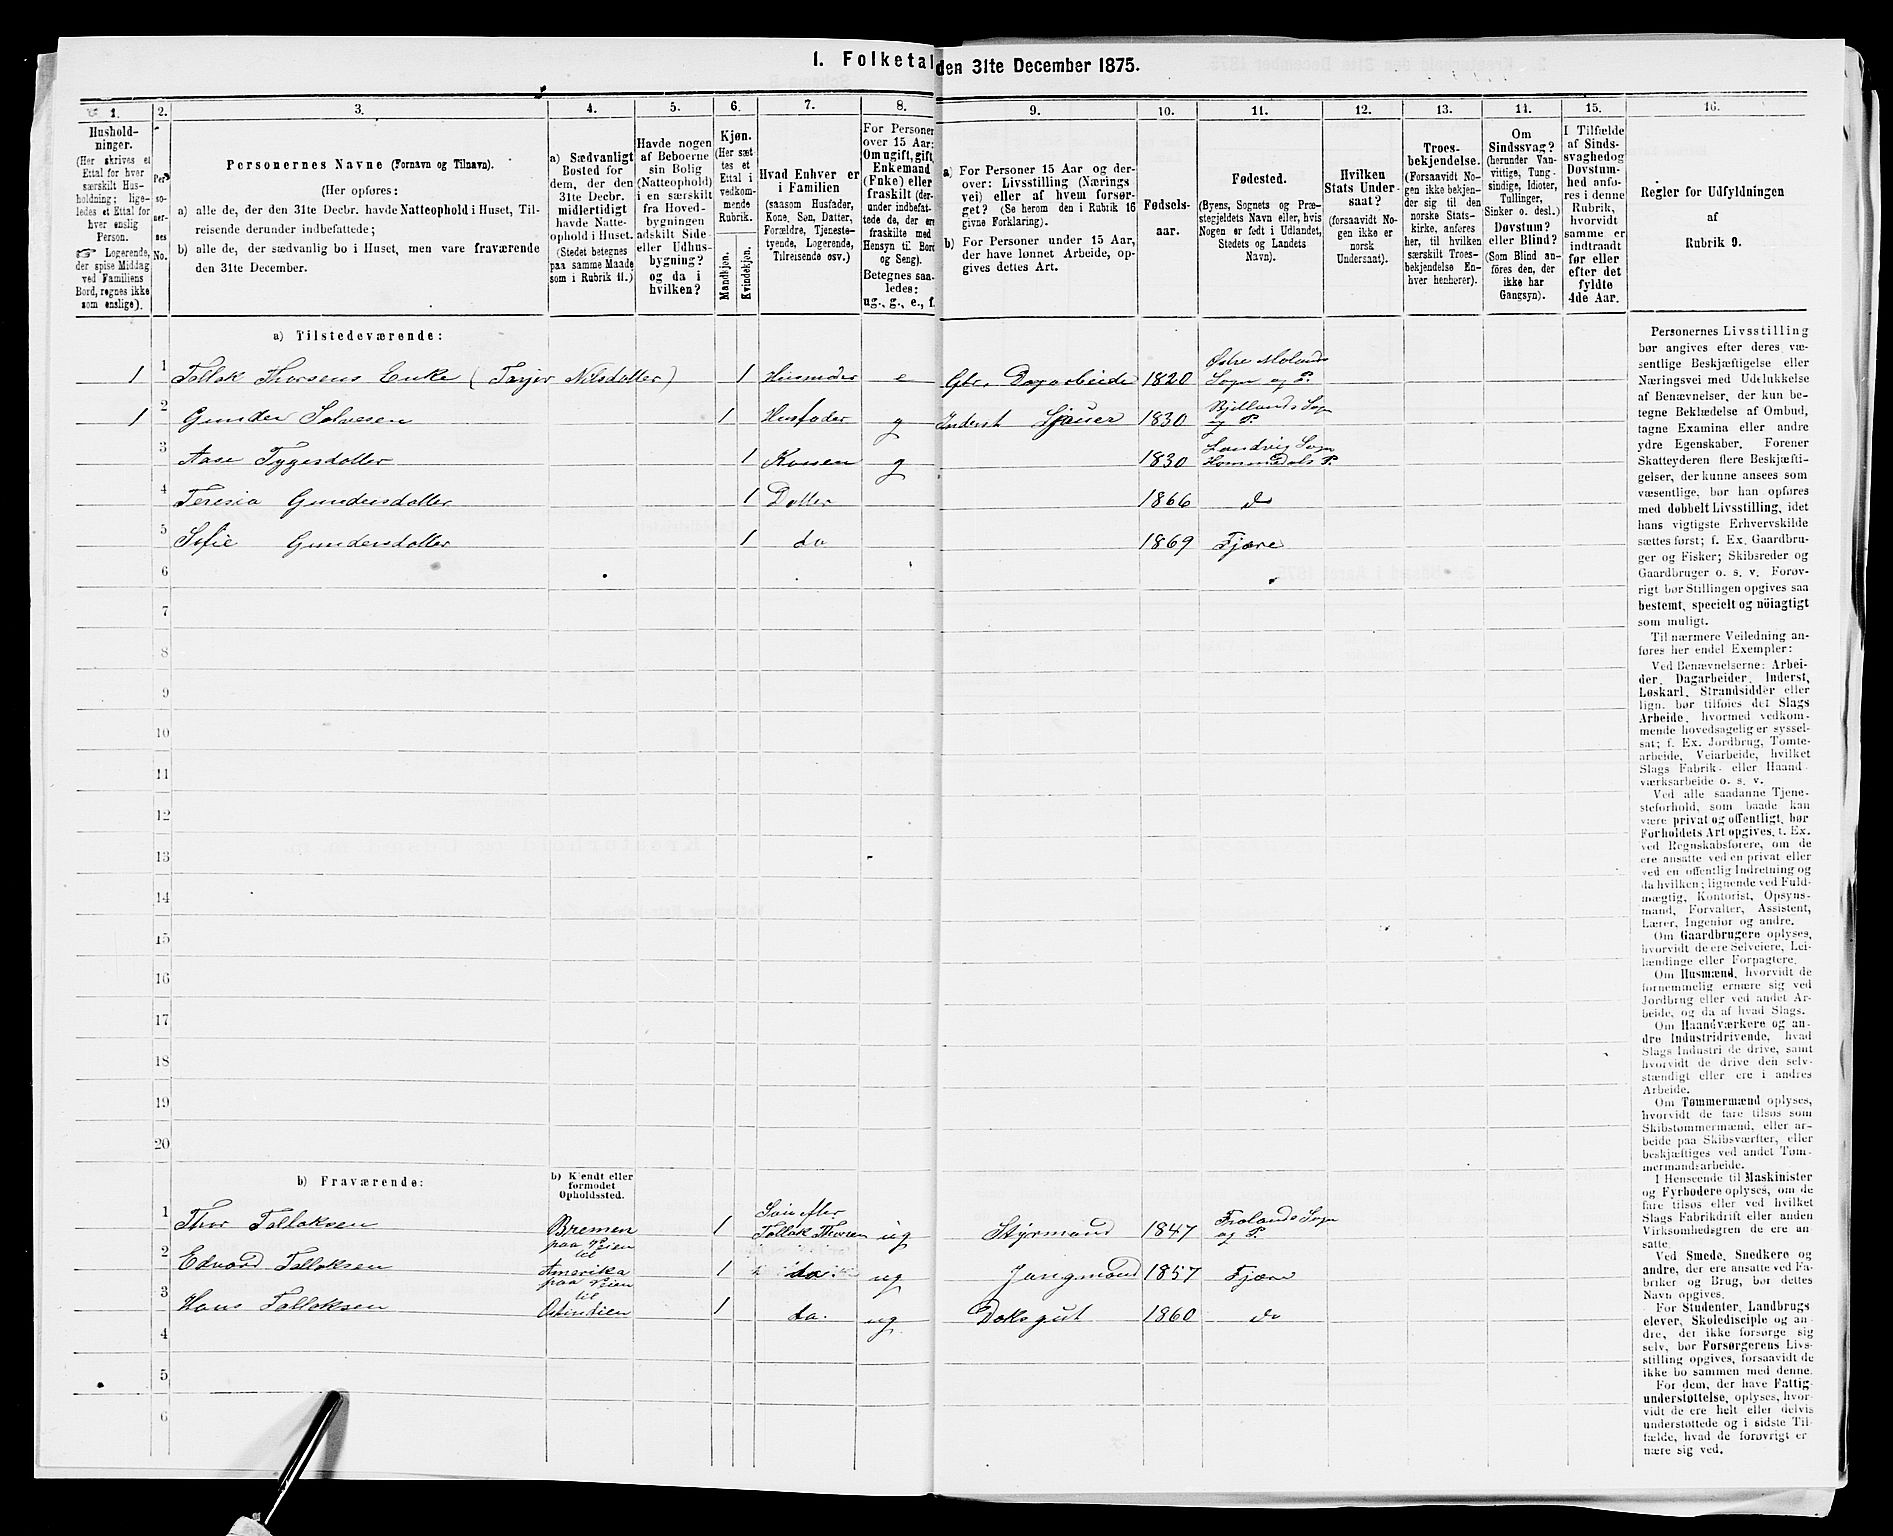 1. Folketal den 31te December 1875.
1. 2. 3. 4. 5. 6. 7. 8. 9. 10. 11. 12. 13. 14. 15. 16.
Hushold-
ninger.
(Her skrives et
Ettal for hver
særskilt Hus-
holdning; lige-
ledes et Ettal for
hver enslig
Person.
☞ Logerende,
der spise Middag
ved Familiens
Bord, regnes ikke
som enslige).
Per-
so-
ner-
nes
No.
Personernes Navne (Fornavn og Tilnavn).
(Her opføres:
a) alle de, der den 31te Decbr. havde Natteophold i Huset, Til-
reisende derunder indbefattede;
b) alle de, der sædvanlig bo i Huset, men vare fraværende
den 31te December.
a) Sædvanligt
Bosted for
dem, der den
31te Decbr.
midlertidigt
havde Natte-
ophold i Huset.
(Stedet betegnes
paa samme Maade
som i Rubrik 11.)
Havde nogen
af Beboerne
sin Bolig
(Natteophold)
i en særskilt
fra Hoved-
bygningen
adskilt Side-
eller Udhus-
bygning?
og da i
hvilken?
Kjøn.
(Her sæt-
tes et
Ettal i
vedkom-
mende
Rubrik.
Mandkjøn.
Kvindekjøn.
Hvad Enhver er
i Familien
(saasom Husfader,
Kone, Søn, Datter,
Forældre, Tjeneste-
tyende, Logerende,
Tilreisende osv.)
For Personer
over 15 Aar:
Om ugift, gift,
Enkemand
(Enke) eller
fraskilt (der-
under indbefat-
tede de, der ere
fraskilte med
Hensyn til Bord
og Seng).
Betegnes saa-
ledes:
ug., g., e., f.
a) For Personer 15 Aar og der-
over: Livsstilling (Nærings
vei) eller af hvem forsør-
get? (Se herom den i Rubrik 16
givne Forklaring).
b) For Personer under 15 Aar,
der have lønnet Arbeide, op-
gives dettes Art.
Fødsels-
aar.
Fødested.
(Byens, Sognets og Præ-
stegjeldets Navn eller, hvis
Nogen er født i Udlandet,
Stedets og Landets
Navn).
Hvilken
Stats Under-
saat?
(forsaavidt No-
gen ikke er
norsk
Undersaat).
Troes-
bekjendelse.
(Forsaavidt No-
gen ikke bekjen-
der sig til den
norske Stats-
kirke, anføres
her, til hvilken
særskilt Troes-
bekjendelse En-
hver henhører).
Om
Sindssvag?
(herunder Van-
vittige, Tung-
sindige, Idioter,
Tullinger,
Sinker o. desl.)
Døvstum?
eller Blind?
(Som Blind an-
føres den, der
ikke har
Gangsyn).
I Tilfælde
af Sinds-
svaghed og
Døvstum-
hed anfø-
res i denne
Rubrik,
hvorvidt
samme er
indtraadt
før eller
efter det
fyldte
4de Aar.
Regler for Udfyldningen
af
Rubrik 9.
a) Tilstedeværende:
1 1 Tallak Thorsens Enke (Tarjer Nilsdatter) 1 Husmoder e Gbr. Dagarbeide 1820 Østre Molands
Sogn og P.
1 2 Gunder Solvesen 1 Husfader g Inderst Sjauer 1830 Bjellands Sogn
og P.
3 Aase Tygesdatter 1 Konen g 1830 Landvig Sogn
Hommedals P.
4 Teresia Gundersdatter 1 Datter 1866 do
5 Sofie Gundersdatter 1 do 1869 Fjære
6
7
8
9
10
11
12
13
14
15
16
17
18
19
20
b) Fraværende:
b) Kjendt eller
formodet
Opholdssted.
1 Thor Tallaksen Bremen 1 Søn efter
Tallak Thorsen ug Styrmand 1847 Frolands Sogn
og P.
2 Edvard Tallaksen paa Veien
til
Amerika 1 do. ug Jungmand 1857 Fjære
3 Hans Tallaksen paa Veien
til
Ostindien 1 do. ug. Doksgut 1860 do
4
5
6
Personernes Livsstilling
bør angives efter deres væ-
sentlige Beskjæftigelse eller
Næringsvei med Udelukkelse
af Benævnelser, der kun be-
tegne Beklædelse af Ombud,
tagne Examina eller andre
ydre Egenskaber. Forener
Skatteyderen flere Beskjæfti-
gelser, der kunne ansees som
væsentlige, bør han opføres
med dobbelt Livsstilling, idet
hans vigtigste Erhvervskilde
sættes først; f. Ex. Gaardbru-
ger og Fisker; Skibsreder og
Gaardbruger o. s. v. Forøv-
rigt bør Stillingen opgives saa
bestemt, specielt og nøiagtigt
som muligt.
Til nærmere Veiledning an-
føres her endel Exempler:
Ved Benævnelserne: Arbei-
der, Dagarbeider, Inderst,
Løskarl, Strandsidder eller
lign. bør tilføies det Slags
Arbeide, hvormed vedkom-
mende hovedsagelig er syssel-
sat; f. Ex. Jordbrug, Tomte-
arbeide, Veiarbeide, hvilket
Slags Fabrik- eller Haand-
værksarbeide o. s. v.
Ved alle saadanne Tjene-
steforhold, som baade kan
være privat og offentligt, bør
Forholdets Art opgives, t. Ex.
ved Regnskabsførere, om de
ere ansatte ved en privat eller
ved en offentlig Indretning og
da hvilken; lignende ved Fuld-
mægtig, Kontorist, Opsyns-
mand, Forvalter, Assistent,
Lærer, Ingeniør og andre.
Om Gaardbrugere oplyses,
hvorvidt de ere Selveiere, Lei-
lændinge eller Forpagtere.
Om Husmænd, hvorvidt de
fornemmelig ernære sig ved
Jordbrug eller ved andet Ar-
beide, og da af hvad Slags.
Om Haandværkere og an-
dre Industridrivende, hvad
Slags Industri de drive, samt
hvorvidt de drive den selv-
stændigt eller ere i andres
Arbeide.
Om Tømmermænd oplyses,
hvorvidt de fare tilsøs som
Skibstømmermænd, eller ar-
beide paa Skibsværfter, eller
beskjæftiges ved andet Tøm-
mermandsarbeide.
I Henseende til Maskinister
og Fyrbødere oplyses, om de
fare tilsøs eller ved hvilket
Slags Fabrikdrift eller anden
Virksomhedsgren de ere an-
satte.
Ved Smede, Snedkere og
andre, der ere ansatte ved Fa-
briker og Brug, bør dettes
Navn opgives.
For Studenter, Landbrugs-
elever, Skoledisciple og an-
dre, der ikke forsørge sig
selv, bør Forsørgerens Livs-
stilling opgives, forsaavidt de
ikke bo sammen med denne.
For dem, der have Fattig-
understøttelse, oplyses, hvor-
vidt de ere helt eller delvis
understøttede og i sidste Til-
fælde, hvad de forøvrigt er
nære sig ved.